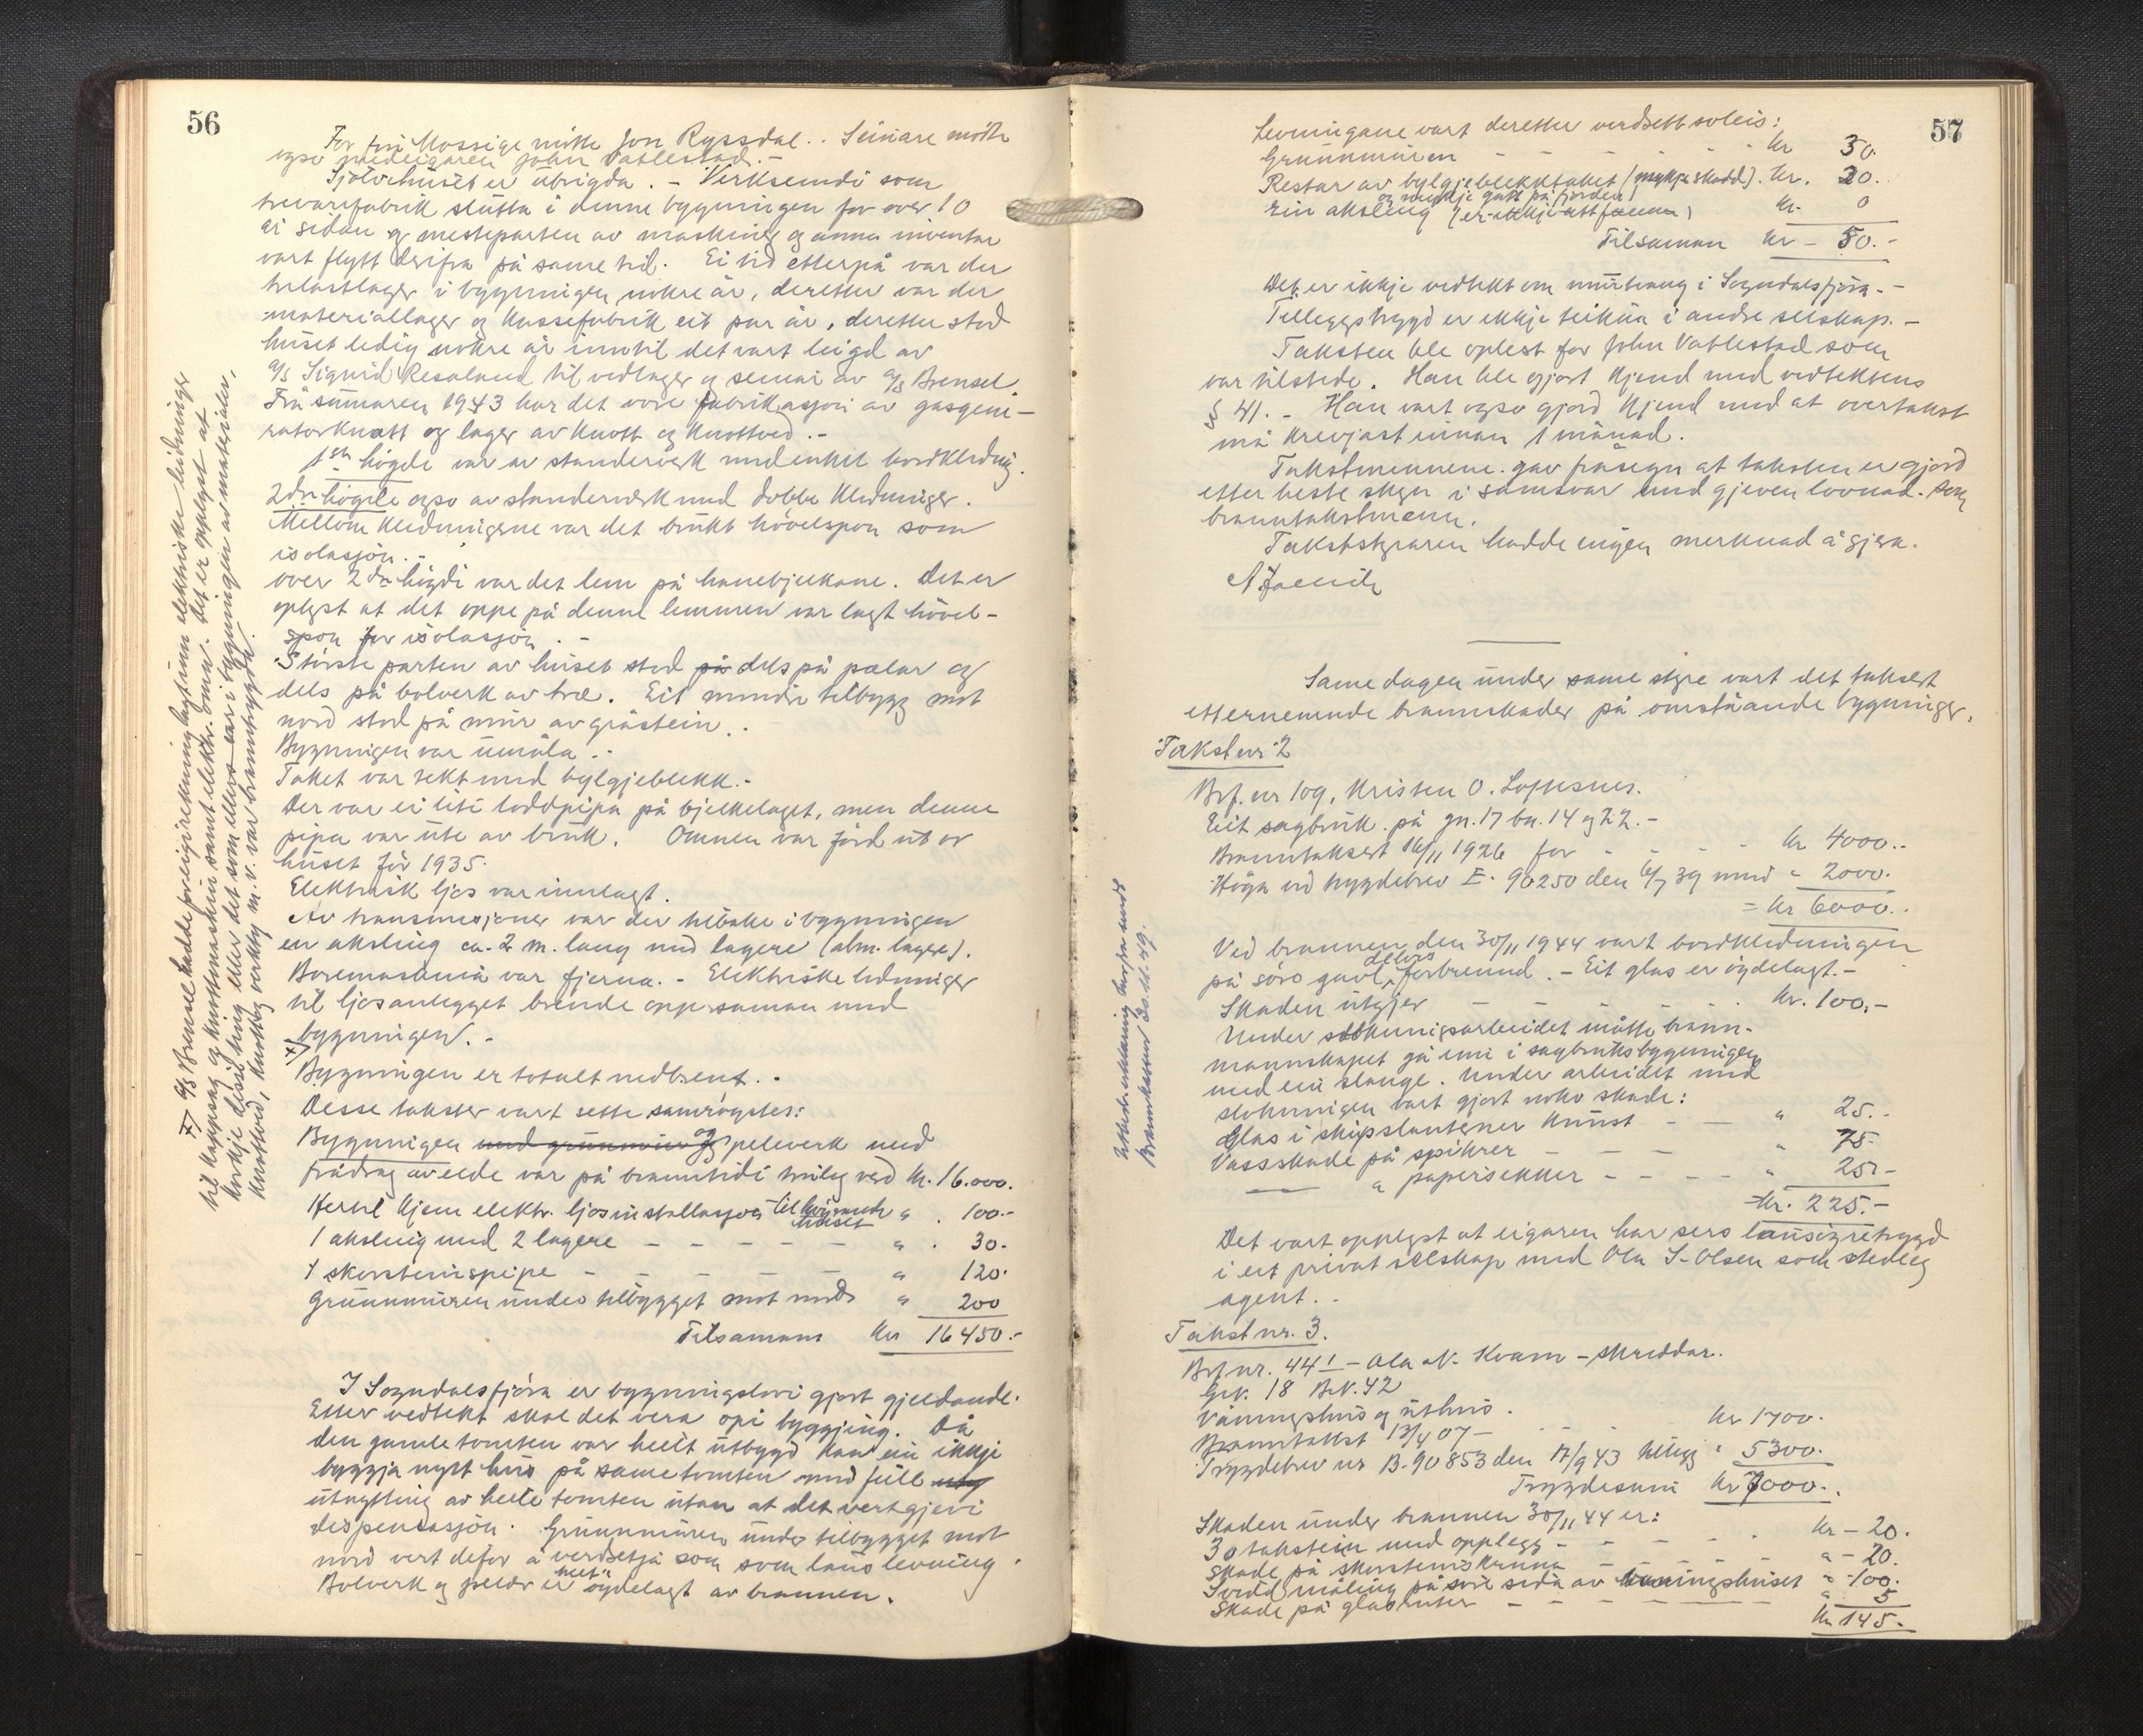 56
For frú Mossige møtte Jon Ryssdal. . Seinare møtte
ogso medeigaren John Vatlestad. -
Sjølvehuset er utrigda. - Verksemdi som
trevarefabrik slutta i denne bygningen for over 10
år sidan og mesteparten av maskiner og anna inventar
vart flytt derifra på same tid. Ei tid etterpå var der
trelastlager i bygningen nokre år, deretter var der
materiallager og kassefabrik eit par år, deretter stod
huset ledig nokre år inntil det vart leigd av
A/S Sigurd Resaland til vedlager og seinare av A/S Brensel
Frå sumaren 1943 har det vore fabrikasjon av gasgene-
ratorknott og lager av knott og knottved. -
1ste høgde var av standerverk med enkel bordkledning.
2dre høgde ogso av standerverk med dobbe kledninger.
Mellom kledningene var det brukt høvelspon som
isolasjon. -
Over 2dre høgdi var det lem på hanebjelkane. Det er
oplyst at det oppe på denne lemmen var lagt høvel-
spon for isolasjon. -
Største parten av huset stod på dels på pælar og
dels på bolverk av træ. Eit mindre tilbygg mot
nord stod på mur av gråstein. .
Bygningen var umåla. -
Taket var tekt med bylgjeblekk. -
Der var ei liti loddpipa på bjelkelaget, men denne
pipa var ute av bruk. Omnen var förd ut or
huset för 1935.
Elektrisk ljos var innlagt.
Av transmisjoner var der tilbake i bygningen
en aksling ca. 2 m. lang med lagere (alm. lagere).
Boremaskina var fjerna. - Elektriske ledninger
til ljosanlegget brende opp saman med
bygningen. -
x)
Bygningen er totalt nedbrent. .
Desse takster vart sette samrøystes:
Bygningen med grunnmur og og pelverk med
frådrag av elde var på branntidi truleg verd kr. 16.000.
Hertil kjem elektr. ljosinstallasjon til huset " . 100.-
1 aksling med 2 lagere - - - - - " . 30.
1 skorsteinspipe - - - - - " 120.
Grunnmuren under tilbygget mot nord " 200
Tilsamans Kr 16450.-
I Sogndalsfjöra er bygningslovi gjort gjeldande.
Etter vedtekt skal det vera opi byggjing. Då
den gamle tomten var heilt utbygd kan ein ikkje
bygja nytt hus på same tomten med full utny
utnytting av heile tomten utan at det vert gjevi
dispensasjon. Grunnmuren under tilbygget mot
nord vert defor å verdsetja som som laus levning.
Bolverk og pelar er heilt öydelagt av brannen.
x) A/S Brensel hadde for eigi rekning lagt inn elektriske leidninger
til kappsag og knottmaskin samt elektr. omn. Det er opplyst at
korkje disse ting eller det som ellers var i bygningen av materialer,
knottved, knott og verkty m.v. var branntrygda.
57
Levningane vart deretter verdsett soleis:
Grunnmuren - - - - - - kr 30.
Restar av bylgjeblekktaket (mykje skadd). kr. 20.
og mykje gått på fjorden)
Ein aksling (er ikkje att funnen) kr. 0
Tilsaman kr - 50.-
Det er ikkje vedtekt om murtvang i Sogndalsfjöra. -
Tilleggstrygd er ikkje teikna i andre selskap. -
Taksten ble oplest for John Vatlestad som
var tilstede. Han ble gjort kjend med vedtektens
§ 41. - Han vart ogso gjord kjend med at overtakst
må krevjast innan 1 månad.
Takstmennene gav fråsegn at taksten er gjord
etter beste skyn i samsvar med gjeven lovnad som
branntakstmenn.
Takststyraren hadde ingen merknad å gjera.
Same dagen under same styre vart det taksert
etternemnde brannskader på omståande bygninger.
Takst nr 2
Brf. nr 109, Kristen O. Loftesnes.
Eit sagbruk på gn. 17 bn. 14 og 22. -
Branntaksert 16/11 1926 for - - - - kr 4000..
Høga ved trygdebrev E. 90250 den 6/7 39 med " 2000.
= kr 6000..
Ved brannen den 30/11 1944 vart bordkledningen
på söre gavl delvis forbrennd. - Eit glas er öydelagt. -
Skaden utgjer - - - - - - kr. 100.-
Under slökningsarbeidet måtte brann-
mannskapet gå inn i sagbruksbygningen
med ein slange. Under arbeidet med
slokningen vart gjort noko skade:
Glas i skipslanterner knust - - " 25.-
Vassskade på spikrer - - - - " 75.
— " papirsekker - - - - " 25.-
Kr. 225.-
Det vart opplyst at eigaren har sers lausöyretrygd
i eit privat selskap med Ola S. Olsen som stedleg
agent. .
Takst nr. 3.
Brf nr. 441 - Ola N. Kvam - skreddar.
Grn. 18 Br.N. 42
Våningshus og uthus.
Branntakst 13/4 07 - - - kr 1700.
Trygdebrev nr B. 90853 den 17/9 43 tillegg " 5300.
Trygdesum kr 7000..
Skaden under brannen 30/11 44 er:
30 takstein med opplegg - - - . kr - 20.
Skade på skorsteinskruna - - - - - " - 20.
Svidd måling på söre sida av våningshuset " - 100.
Skade på glasruter - - - - - " 5
Kr 145.-
Brannkassen 30.11.49.